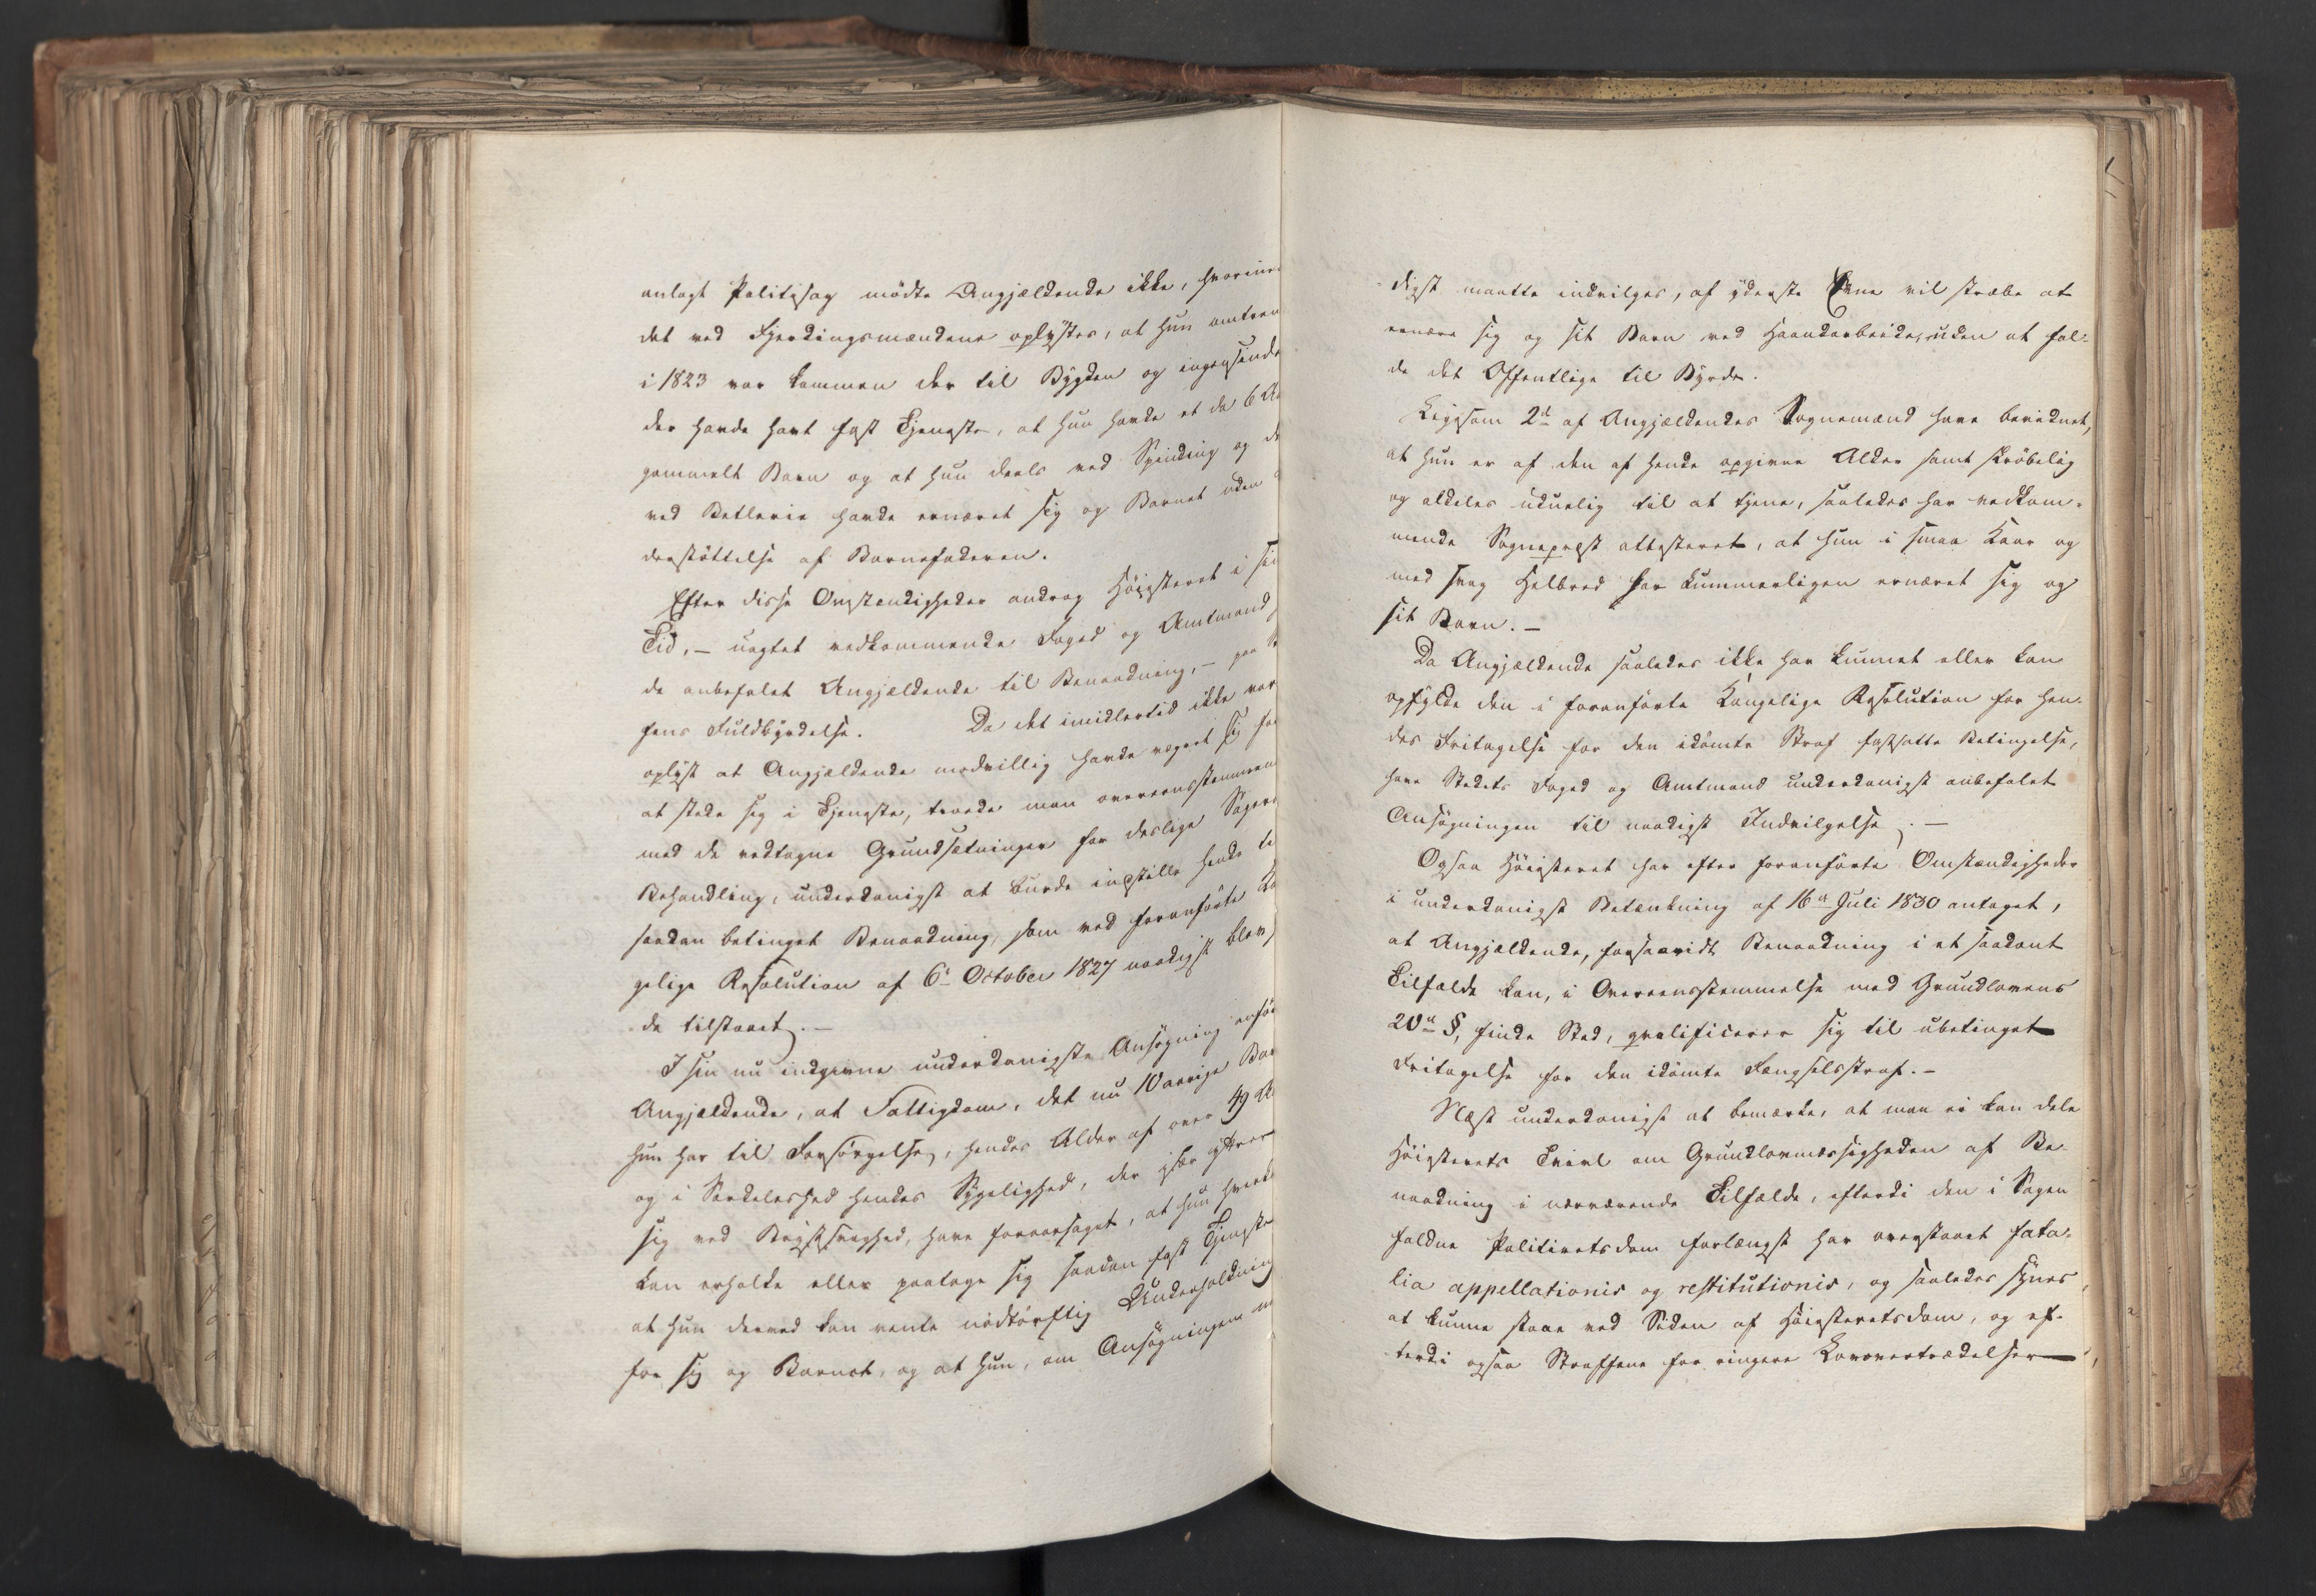 anlagt Politisag mödte Angjældende ikke, hvorimod
det ved Fjerdingsmændene oplystes, at hun omtrent
i 1823 var kommen der til Bygden og ingensinde
der havde havt fast Tjeneste, at hun havde et da 6 Aar
gammelt Barn og at hun deels ved Spinding og deels
ved Betlerie havde ernæret sig og Barnet uden
derstöttelse af Barnefaderen.
Efter disse Omstændigheder androg Höiesteret i sin
Tid, – uagtet vedkommende Foged og Amtmand
de anbefalet Angjældende til Benaadning, – paa
fens Fuldbyrdelse. Da det imidlertid ikke var
oplyst at Angjældende modvillig havde vægret sig for
at stede sig i Tjeneste, troede man overeensstemmende
med de vedtagne Grundsætninger for deslige Sagers
Behandling, underdanigst at burde indstille hende til
saadan betinget Benaadning, som ved foranförte Kon
gelige Resolution af 6te October 1827 naadigst blev
de tilstaaet. –
I sin nu indgivne underdanigste Ansögning anförer
Angjældende, at Fattigdom, det nu 10 aarige Barn
hun har til Forsörgelse, hendes Alder af over 49 Aar
og i Særdeleshed hendes Sygelighed, der især yttrer
sig ved Brystsvaghed, have foraarsaget, at hun hverken
kan erholde eller paatage sig saadan fast Tjeneste
at hun derved kan vente nödtörftig Underholdning
for sig og Barnet, og at hun, om Ansögningen
digst maatte indvilges, af yderste Evne vil stræbe at
ernære sig og sit Barn ved Haandarbeide, uden at fal-
de det Offentlige til Byrde.
Ligesom 2de af Angjældendes Sognemænd have bevidnet,
at hun er af den af hende opgivne Alder samt skröbelig
og aldeles uduelig til at tjene, saaledes har vedkom-
mende Sognepræst attesteret, at hun i smaa Kaar og
med svag Helbred har kummerligen ernæret sig og
sit Barn. –
Da Angjældende saaledes ikke har kunnet eller kan
opfylde den i foranförte Kongelige Resolution for hen-
des Fritagelse for den idömte Straf fastsatte Betingelse,
have Stedets Foged og Amtmand underdanigst anbefalet
Ansögningen til naadigst Indvilgelse. –
Ogsaa Höiesteret har efter foranförte Omstændigheder
i underdanigst Betænkning af 16de Juli 1830 antaget,
at Angjældende, forsaavidt Benaadning i et saadant
Tilfælde kan, i Overeensstemmelse med Grundlovens
20de §, finde Sted, qvalificerer sig til ubetinget
Fritagelse for den idömte Fængselsstraf. –
Næst underdanigst at bemærke, at man ei kan dele
Höiesterets Tvivl om Grundlovmæssigheden af Be-
naadning i nærværende Tilfælde, efterdi den i Sagen
faldne Politiretsdom forlængst har overstaaet fata-
lia appellationis og restitutionis, og saaledes synes
at kunne staae ved Siden af Höiesteretsdom, og ef-
terdi ogsaa Straffene for ringere Lovovertrædelser